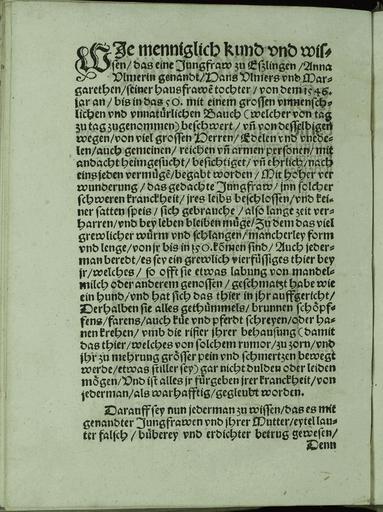 WJe menniglich kund vnd wis-
sen/das eine Jungfraw zu Eßlingen/Anna
Vlmerin genandt/Hans Vlmers vnd Mar-
garethen/seiner hausfrawē tochter/von dem 1546.
jar an/bis in das 50. mit einem grossen vnmensch-
lichen vnd vnnatürlichen Bauch (welcher von tag
zu tag zugenommen) beschwert/vñ von desselbigen
wegen/von viel grossen Herren/Edelen vnd vnede-
len/auch gemeinen/reichen vñ armen personen/mit
andacht heimgesucht/besichtiget/vñ ehrlich/nach
eins jeden vermüge/begabt worden/Mit hoher ver
wunderung/das gedachte Jungfraw/jnn solcher
schweren kranckheit/jres leibs beschlossen/vnd kei-
ner satten speis/sich gebrauche/also lange zeit ver-
harren/vnd bey leben bleiben müge/Zu dem das viel
grewlicher würm vnd schlangen/mancherley form
vnd lenge/von jr bis in 150. kōmen sind/Auch jeder-
man beredt/es sey ein grewlich vierfüssiges thier bey
jr/welches/so offt sie etwas labung von mandel-
milch oder anderem genossen/geschmatzt habe wie
ein hund/vnd hat sich das thier in jhr auffgericht/
Derhalben sie alles gethümmels/brunnen schöpf-
fens/farens/auch küe vnd pferdt schreyen/oder ha-
nen krehen/vmb die rifier jhrer behausung (damit
das thier/welches von solchem rumor/zu zorn/vnd
jhr zu mehrung grösser pein vnd schmertzen bewegt
werde/etwas stiller sey) gar nicht dulden oder leiden
mögen/Vnd ist alles jr fürgeben jrer kranckheit/von
jederman/als warhafftig/gegleubt worden.
Darauff sey nun jederman zu wissen/das es mit
genandter Jungfrawen vnd jhrer Mutter/eytel lau-
ter falsch/büberey vnd erdichter betrug gewesen/
Denn